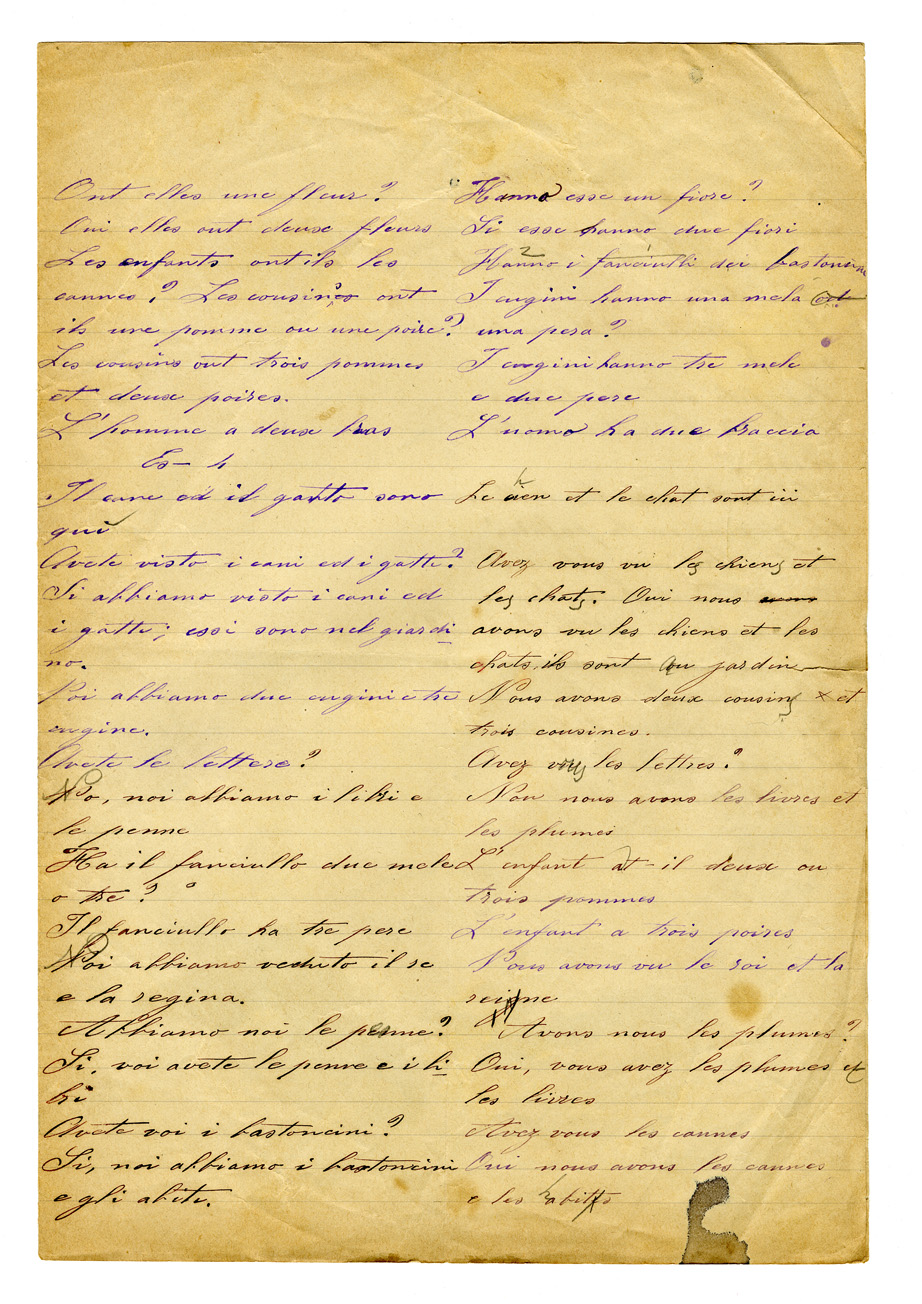 Ont elles une fleur?
Oui elles ont deux fleurs
Les enfants ont ils les
cannes? Les cousines ont
ils une pomme ou une poire?
Les cousins ont trois pommes
et deux poires.
L'homme a deux bras
Es— 4
Il cane ed il gatto sono
qui
Avete visto i cani ed i gatti?
Si abbiamo visto i cani ed
i gatti; essi sono nel giardi
no.
Noi abbiamo due cugini e tre
cugine.
Avete le lettere?
No, noi abbiamo i libri e
le penne
Ha il fanciullo due mele
o tre?
Il fanciullo ha tre pere
Noi abbiamo veduto il re
e la regina.
Abbiamo noi le penne?
Si, voi avete le penne e i li
bri
Avete voi i bastoncini?
Si, noi abbiamo i bastoncini
e gli abiti.
Hanno esse un fiore?
Si esse hanno due fiori
Hanno i fanciulli dei bastoncini
I cugini hanno una mela
una pera?
I cugini hanno tre mele
e due pere
L'uomo ha due braccia
Le chien et le chat sont ici
Avez vous vu les chiens et
les chats. Oui nous avons
avons vu les chiens et les
chats, ils sont au jardin
Nous avons deux cousins x et
trois cousines.
Avez vous les lettres?
Non nous avons les livres et
les plumes
L'enfant at-il deux ou
trois pommes
L'enfant a trois poires
Nous avons vu le roi et la
reine
Avons nous les plumes?
Oui, vous avez les plumes et
les livres
Avez vous les cannes
Oui nous avons les cannes
e les habits